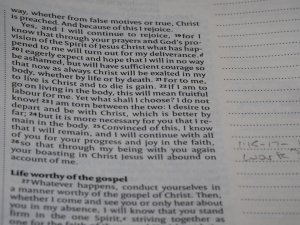 way, whether from false motives or true, Christ
is preached. And because of this I rejoice.
Yes, and I will continue to rejoice, 19 for I
know that through your prayers and God's pro-
vision of the Spirit of Jesus Christ what has hap-
pened to me will turn out for my deliverance.
20 I eagerly expect and hope that I will in no way
be ashamed, but will have sufficient courage so
that now as always Christ will be exalted in my
body, whether by life or by death. 21 For to me,
to live is Christ and to die is gain. 22 If I am to
go on living in the body, this will mean fruitful
labour for me. Yet what shall I choose? I do not
know! 23 I am torn between the two: I desire to
depart and be with Christ, which is better by
far; 24 but it is more necessary for you that I re-
main in the body. 25 Convinced of this, I know
that I will remain, and I will continue with all
of you for your progress and joy in the faith,
26 so that through my being with you again
your boasting in Christ Jesus will abound on
account of me.
Life worthy of the gospel
27 Whatever happens, conduct yourselves in
a manner worthy of the gospel of Christ. Then,
whether I come and see you or only hear about
you in my absence, I will know that you stand
firm in the one Spirit, striving together as
one for the faith